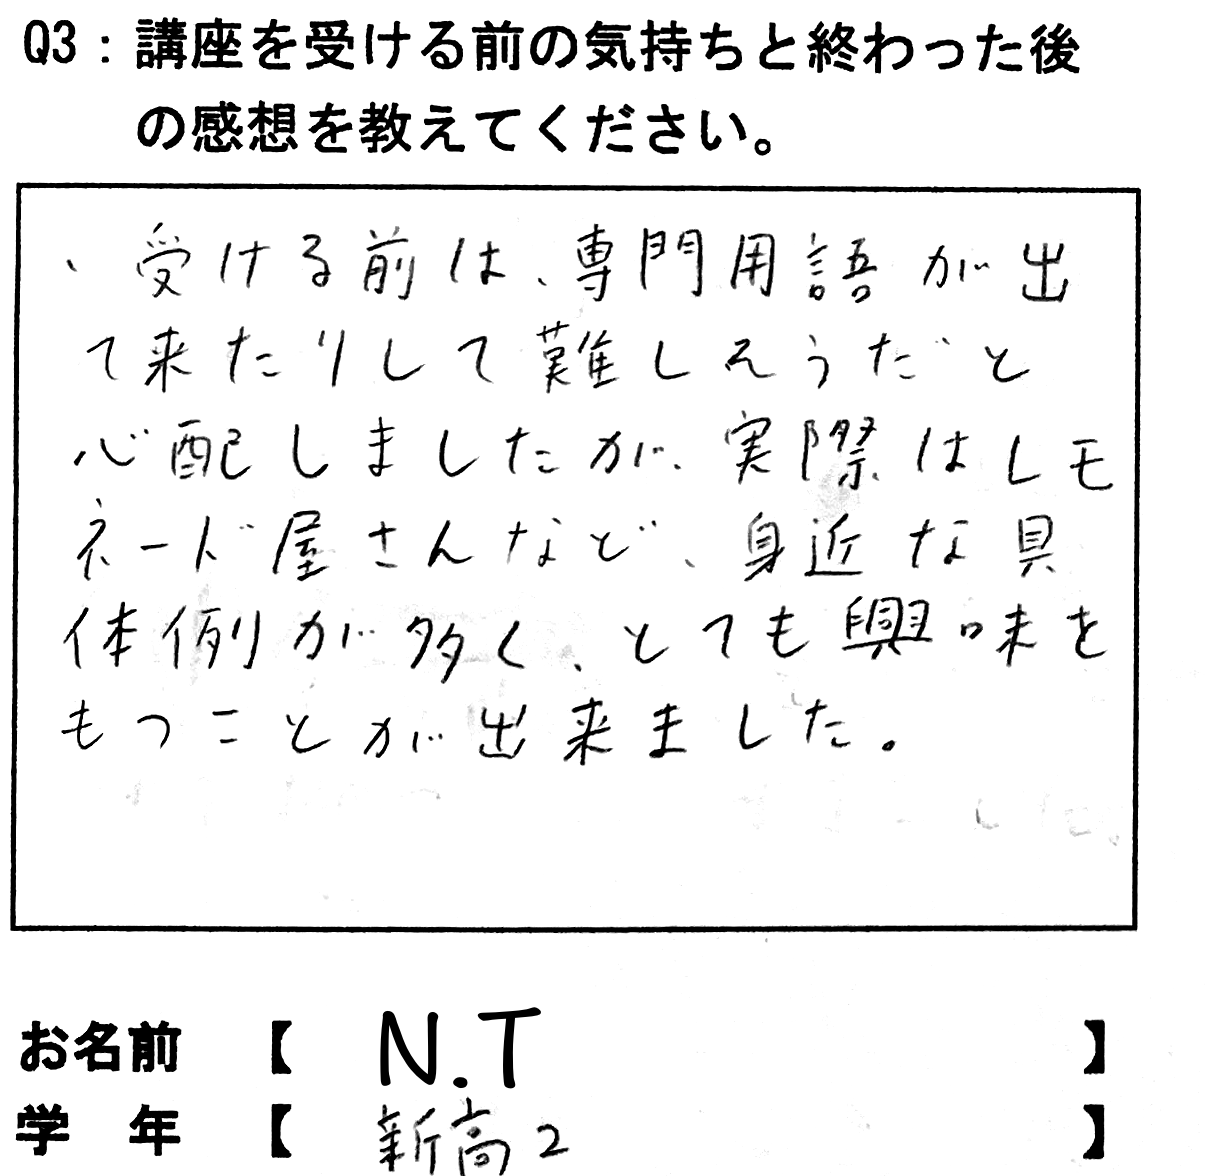 Q3：講座を受ける前の気持ちと終わった後
の感想を教えてください。
、受ける前は、専門用語が出
て来たりして難しそうだと
心配しましたが、実際はレモ
ネード屋さんなど、身近な具
体例が多く、とても興味を
もつことが出来ました。
お名前 【 N.T 】
学 年 【 新高2 】